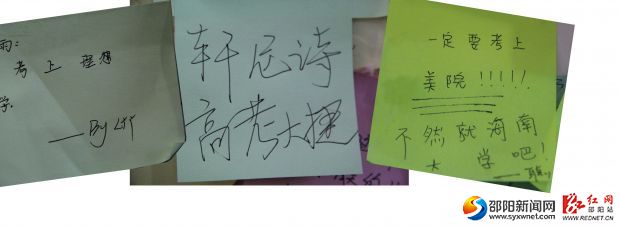 雨:
考上理想
学.
——By
轩尼诗
高考大捷
一定要考上
美院!!!!!!
不然就海南
大学吧!
邵阳新闻网
www.syxwnet.com
红网
邵阳站
WWW.REDNET.CN